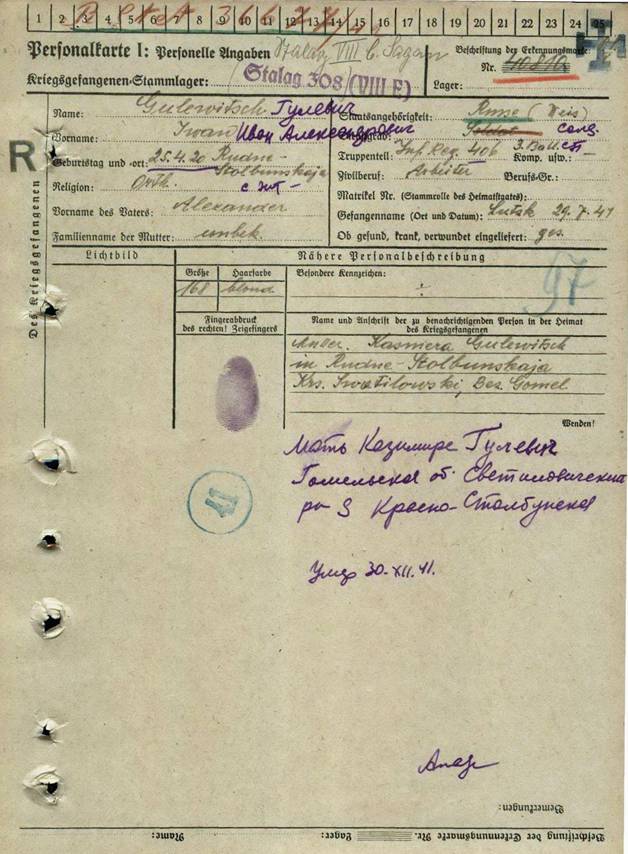 1 2 3 4 5 6 7 8 9 10 11 12 13 14 15 16 17 18 19 20 21 22 23 24 25
Personalkarte I: Personelle Angaben
Stalag VIII C Sagan
Beschriftung der Erkennungsmarke
Nr. 40816
Kriegsgefangenen-Stammlager: Stalag 308 (VIII E)
Lager:
Des Kriegsgefangenen
R
Name: Gulewitsch Гулевич
Vorname: Iwan Иван Александрович
Geburtstag und -ort: 25.4.20 Rudne-
Stolbunskaja
Religion: Orth.
Vorname des Vaters: Alexander
Familienname der Mutter: unbek.
Staatsangehörigkeit: Russe (Weis)
Dienstgrad: Soldat солд.
Truppenteil: Inf. Reg. 406 Komp. usw.:
Zivilberuf: Arbeiter Berufs-Gr.:
Matrikel Nr. (Stammrolle des Heimatstaates):
Gefangennahme (Ort und Datum): Lutzk 29.7.41
Ob gesund, krank, verwundet eingeliefert: ges.
Lichtbild
Nähere Personalbeschreibung
Größe
Haarfarbe
Besondere Kennzeichen:
168
blond
97
Fingerabdruck
des rechten! Zeigefingers
Name und Anschrift der zu benachrichtigenden Person in der Heimat
des Kriegsgefangenen
Mutter. Kasmera Gulewitsch
in Rudne-Stolbunskaja
Krs. Swetilowski, Bez. Gomel
Wenden!
Мать Казимира Гулевич
Гомельская об Светиловический
р-н Красно-Столбунска
41
Умер 30-XII.41.
Bemerkungen:
Beschriftung der Erkennungsmarke Nr.
Lager:
Name: